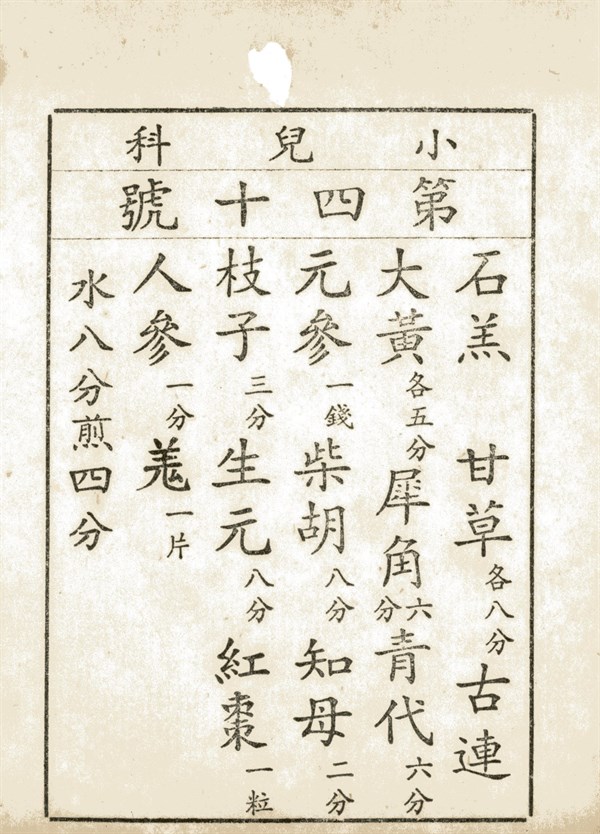 小兒科
第四十號
石羔 甘草各八分古連
大黃各五分犀角六分青代六分
元參一錢柴胡八分知母二分
枝子三分生元八分紅棗一粒
人參一分羗一片
水八分煎四分